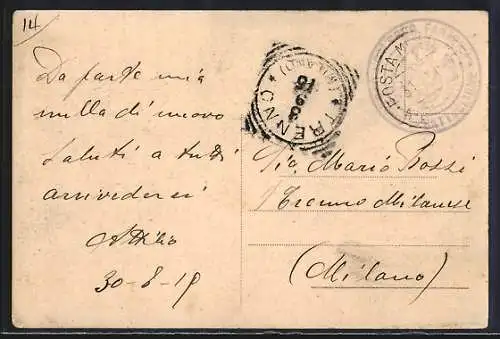 14
Da parte mia
nulla di nuovo
Saluti a tutti
arrivederci
Attilio
30-8-18
TRENNO
(MILANO)
POSTA M
Sig. Mario Rossi
Trenno Milanese
(Milano)